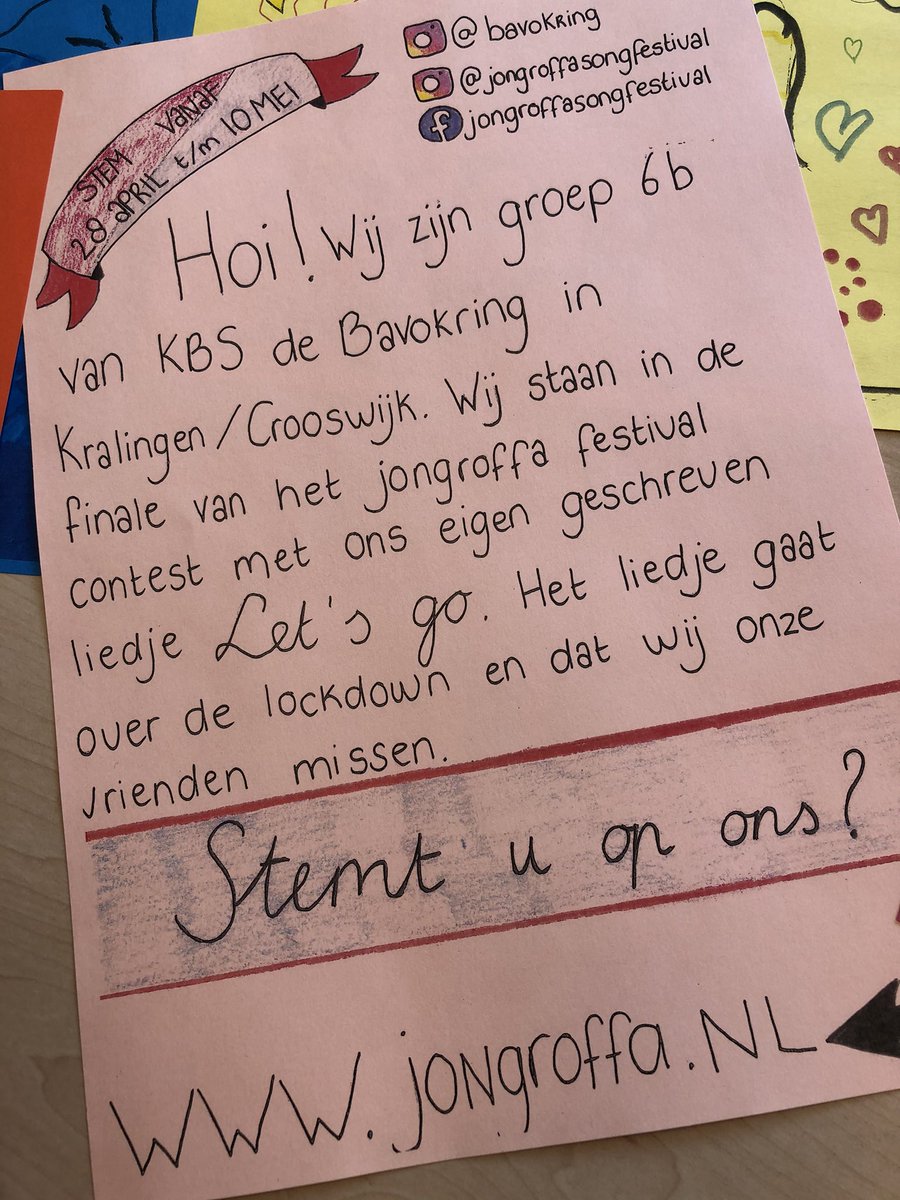 STEM VANAF
28 APRIL t/m 10 MEI
@ bavokring
@jongroffasongfestival
jongroffasongfestival
Hoi! Wij zijn groep 6b
van KBS de Bavokring in
Kralingen/Crooswijk. Wij staan in de
finale van het jongroffa festival
contest met ons eigen geschreven
liedje Let's go. Het liedje gaat
over de lockdown en dat wij onze
vrienden missen.
Stemt u op ons?
WWW.jongroffa.NL